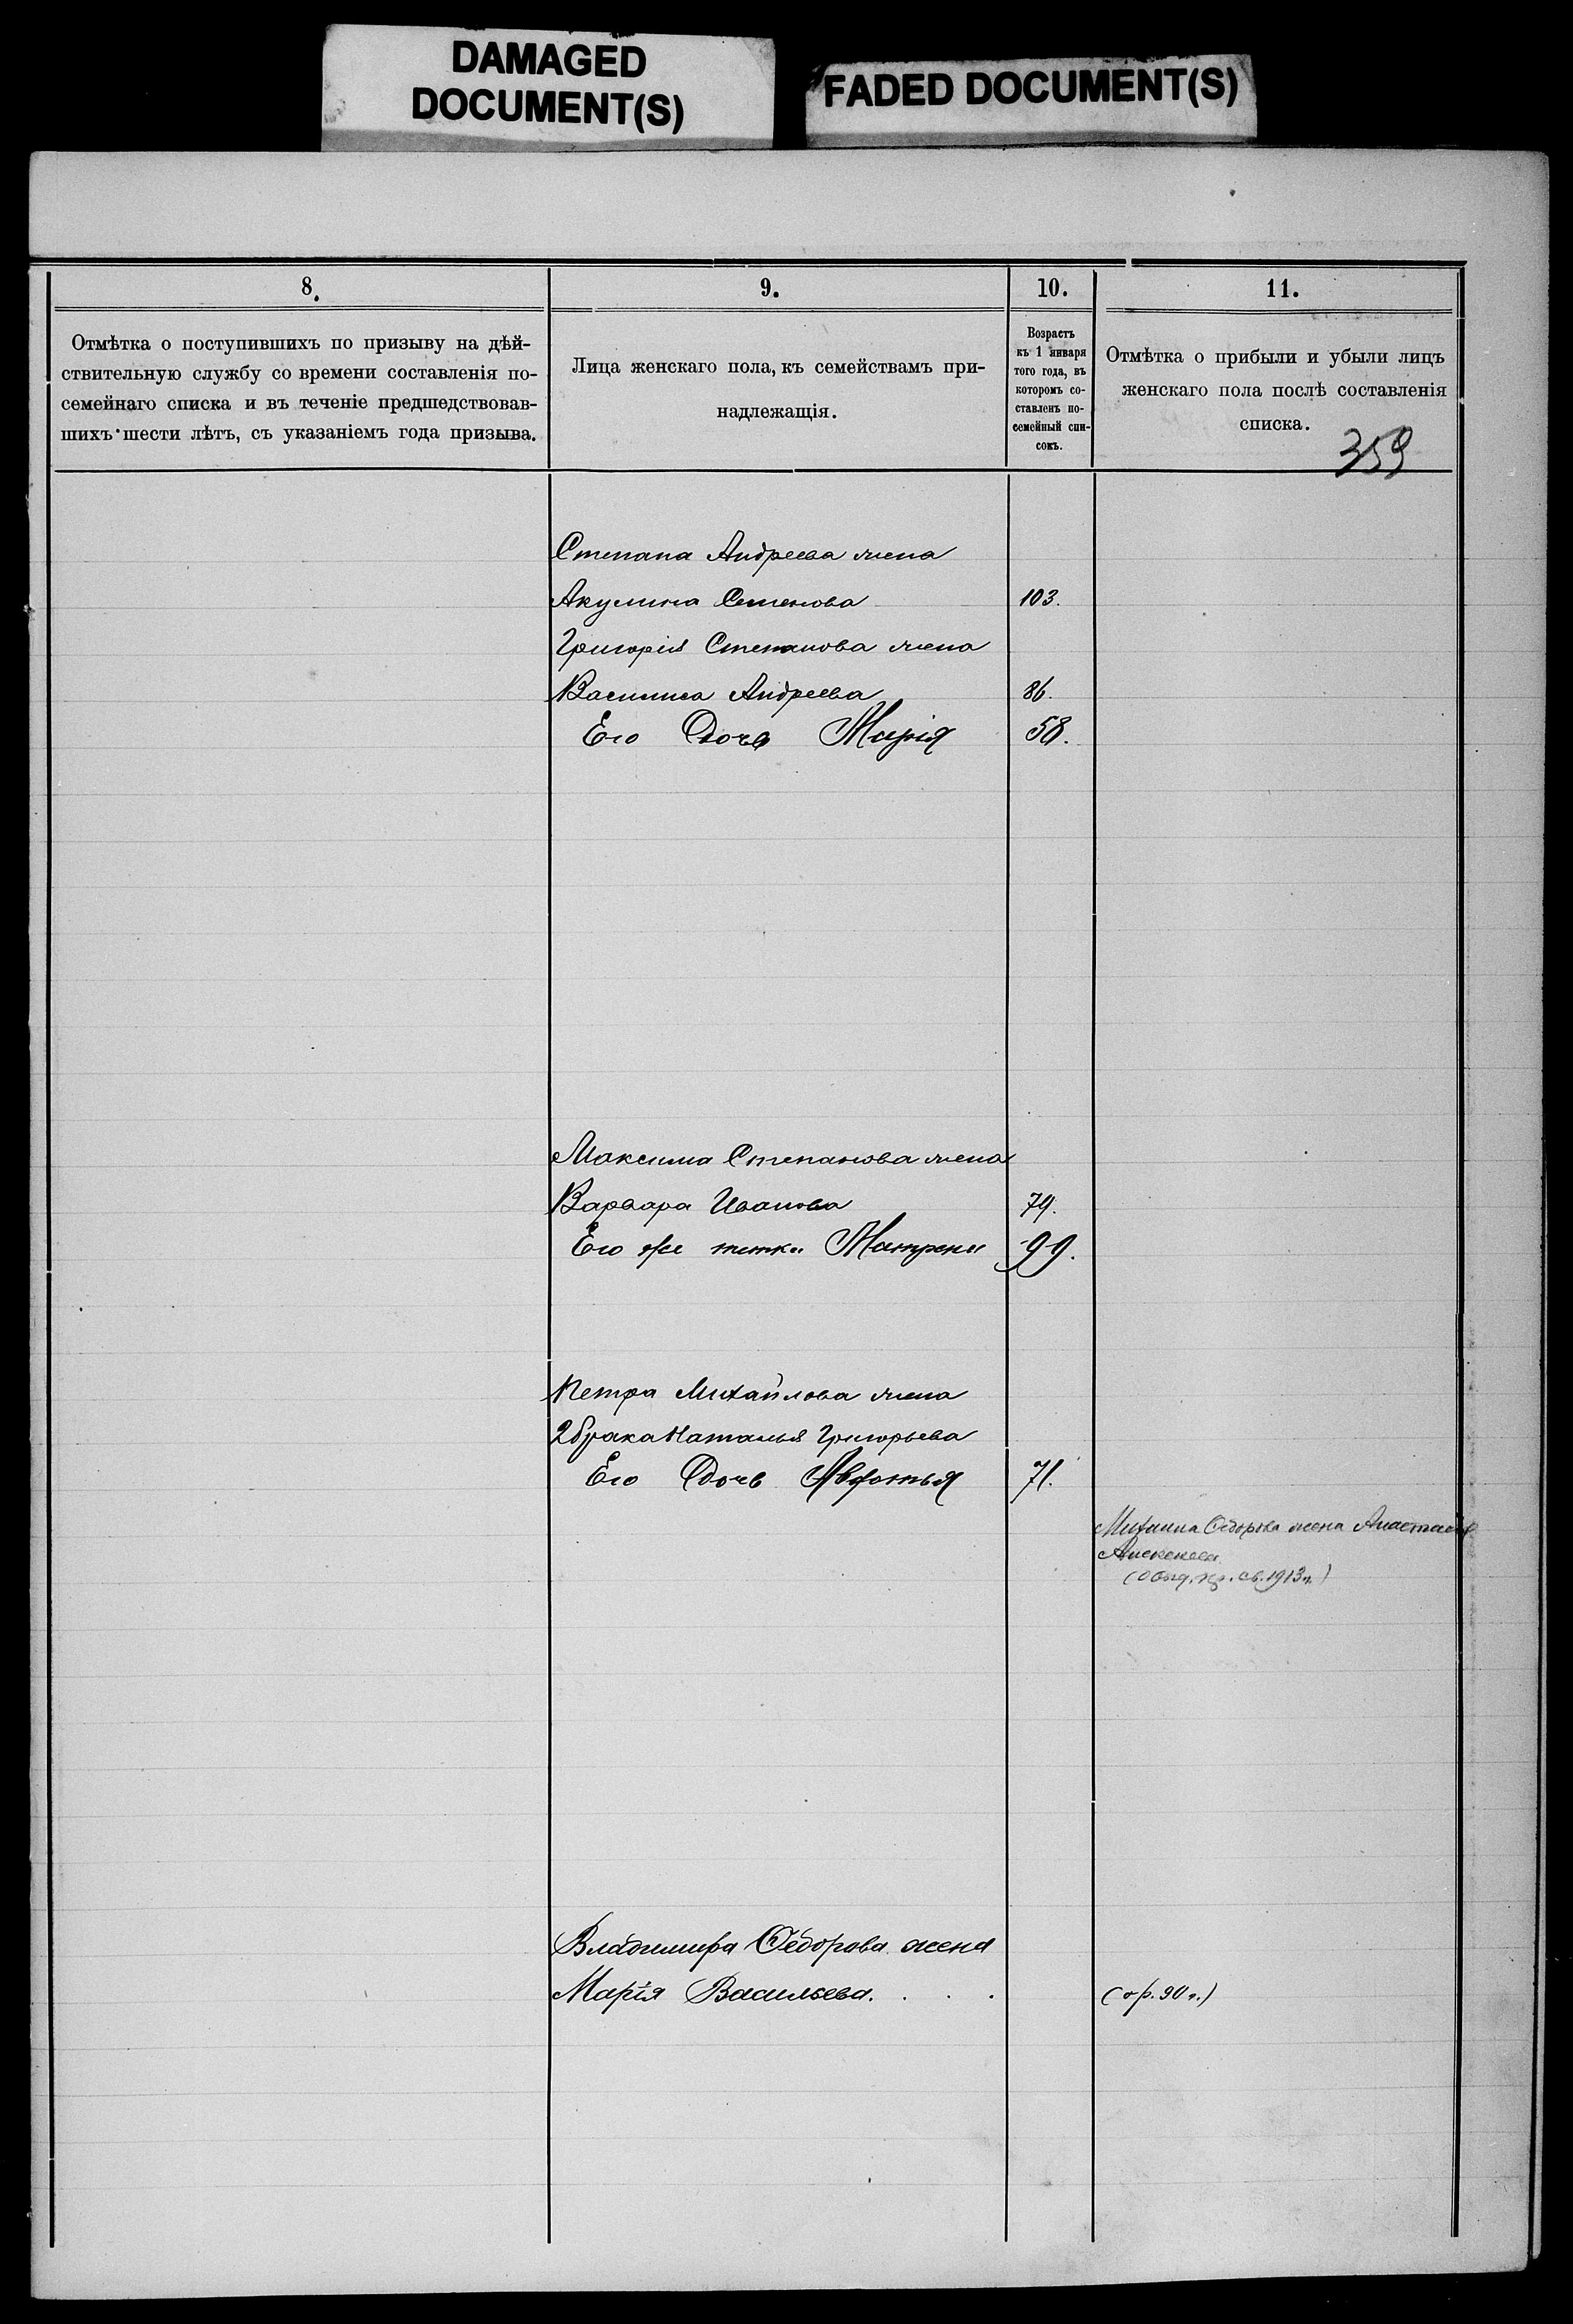 DAMAGED
DOCUMENT(S)
FADED DOCUMENT(S)
8.
9.
10.
11.
Отмѣтка о поступившихъ по призыву на дѣй-
ствительную службу со времени составленія по-
семейнаго списка и въ теченіе предшедствовав-
шихъ шести лѣтъ, съ указаніемъ года призыва.
Лица женскаго пола, къ семействамъ при-
надлежащія.
Возрастъ
къ 1 января
того года, въ
которомъ со-
ставленъ по-
семейный спи-
сокъ.
Отмѣтка о прибыли и убыли лицъ
женскаго пола послѣ составленія
списка.
359
Степана Андреева жена
Акулина Семенова 103.
Григорія Степанова жена
Василиса Андреева 86.
Его Дочь Марія 58.
Максима Степанова жена
Варвара Иванова 79.
Его же тетка Матрена 99.
Петра Михайлова жена
2 брака Наталья Григорьева
Его Дочь Авдотья 71.
Михаила Ѳедорова жена Анастасія
Алексеева
1913 г.)
Владимира Ѳедорова жена
Марія Васильева. . . . (о р. 90 г.)